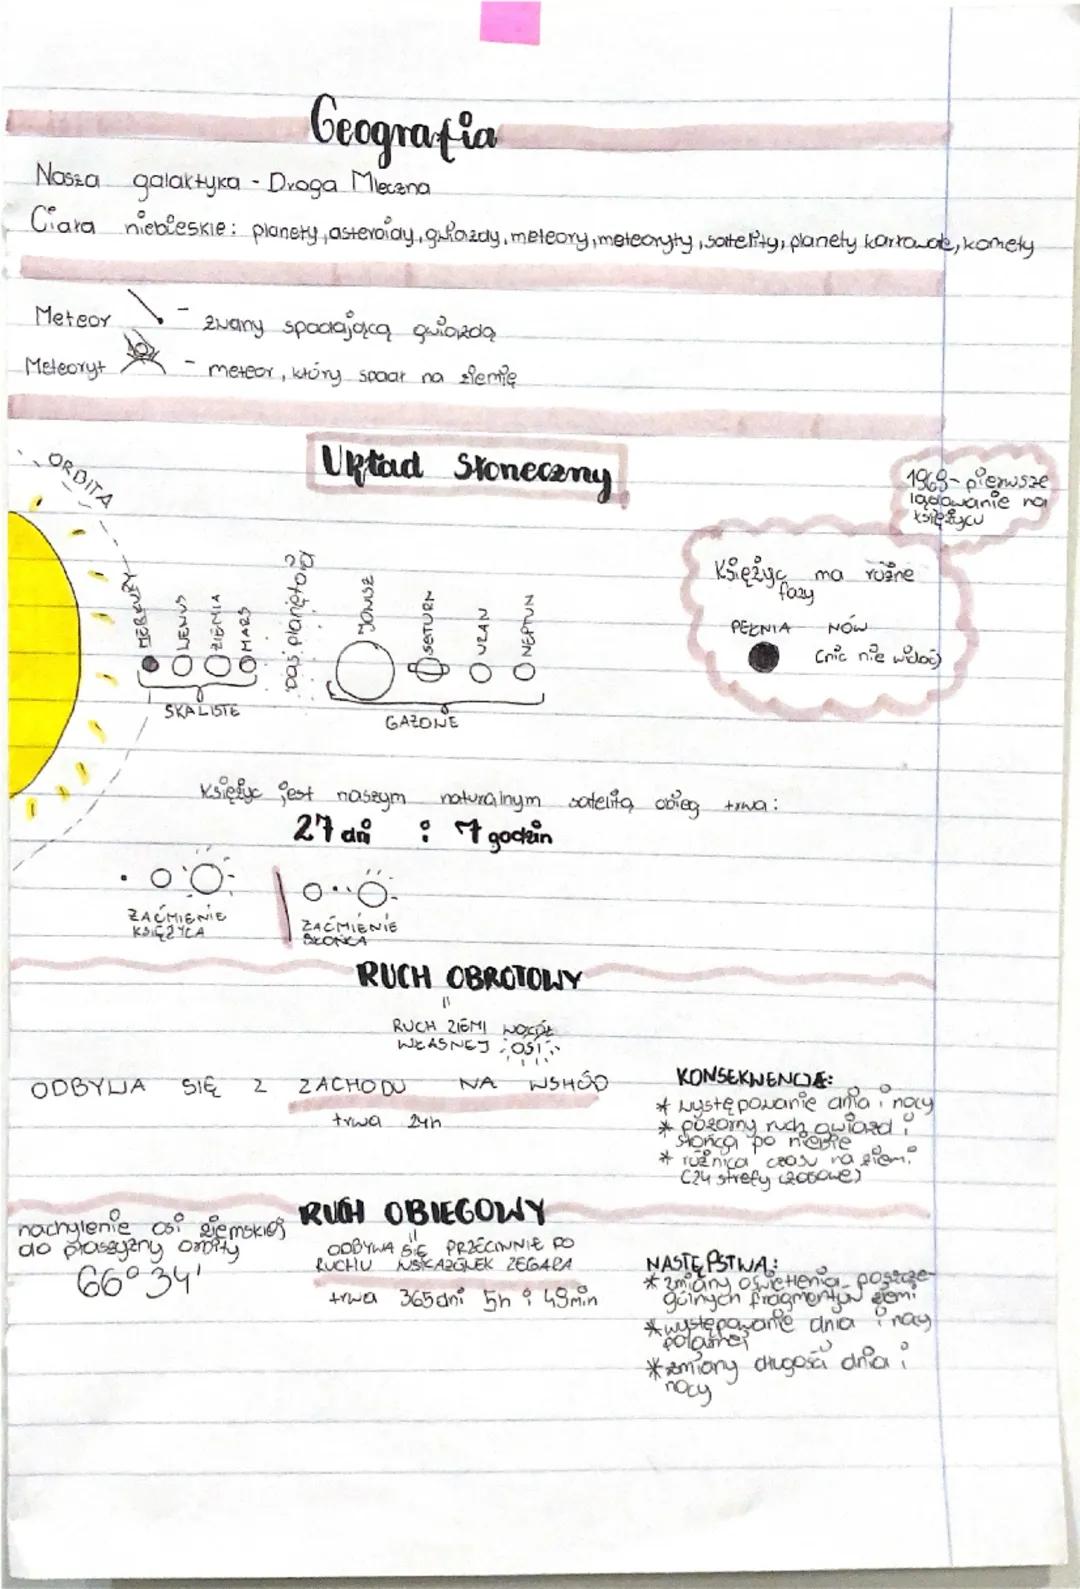 Geografia
Nasza galaktyka - Droga Mleczna
Ciała niebieskie: planety, asteroidy, gwiazdy, meteory, meteoryty, satelity, planety karłowate, komety
Meteor - zwany spadającą gwiazdą
Meteoryt - meteor, który spadł na ziemię
Układ Słoneczny
ORBITA
1969 - pierwsze
lądowanie na
księżycu
MERKURY
WENUS
ZIEMIA
MARS
pas planetoid
JOWISZ
SATURN
URAN
NEPTUN
SKALISTE
GAZOWE
Księżyc ma różne
fazy
PEŁNIA NÓW
(nic nie widać)
Księżyc jest naszym naturalnym satelitą obieg trwa:
27 dni i 7 godzin
ZAĆMIENIE
KSIĘŻYCA
ZAĆMIENIE
SŁOŃCA
RUCH OBROTOWY
RUCH ZIEMI WOKÓŁ
WŁASNEJ OSI
ODBYWA SIĘ Z ZACHODU NA WSHÓD
trwa 24h
KONSEKWENCJE:
* występowanie dnia i nocy
* pozorny ruch gwiazd i
słońca po niebie
* różnica czasu na ziemi
(24 strefy czasowe)
RUCH OBIEGOWY
nachylenie osi ziemskiej
do płaszyzny orbity
66° 34'
ODBYWA SIĘ PRZECIWNIE PO
RUCHU WSKAZÓWEK ZEGARA
trwa 365 dni 5h i 49min
NASTĘPSTWA:
* zmiany oświetlenia poszcze-
gólnych fragmentów ziemi
* występowanie dnia i nocy
polarnej
* zmiany długości dnia i
nocy